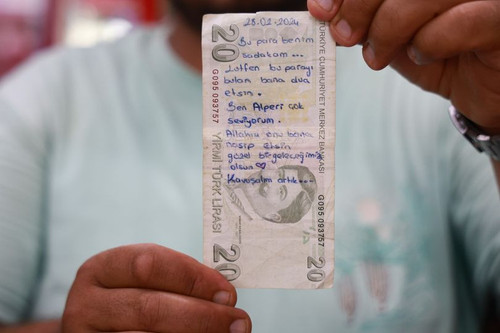 28.02-2024
Bu para benim
sadakam...
Lütfen bu parayı
bulan bana dua
etsin.
Ben Alperi çok
seviyorum.
Allahım onu bana
nasip etsin
güzel bir geleceğimiz
olsun ♡
Kavuşalım artık...
20
G095 093757
YİRMİ TÜRK LİRASI
20
TÜRKİYE CUMHURİYET MERKEZ BANKASI
G095 093757
20